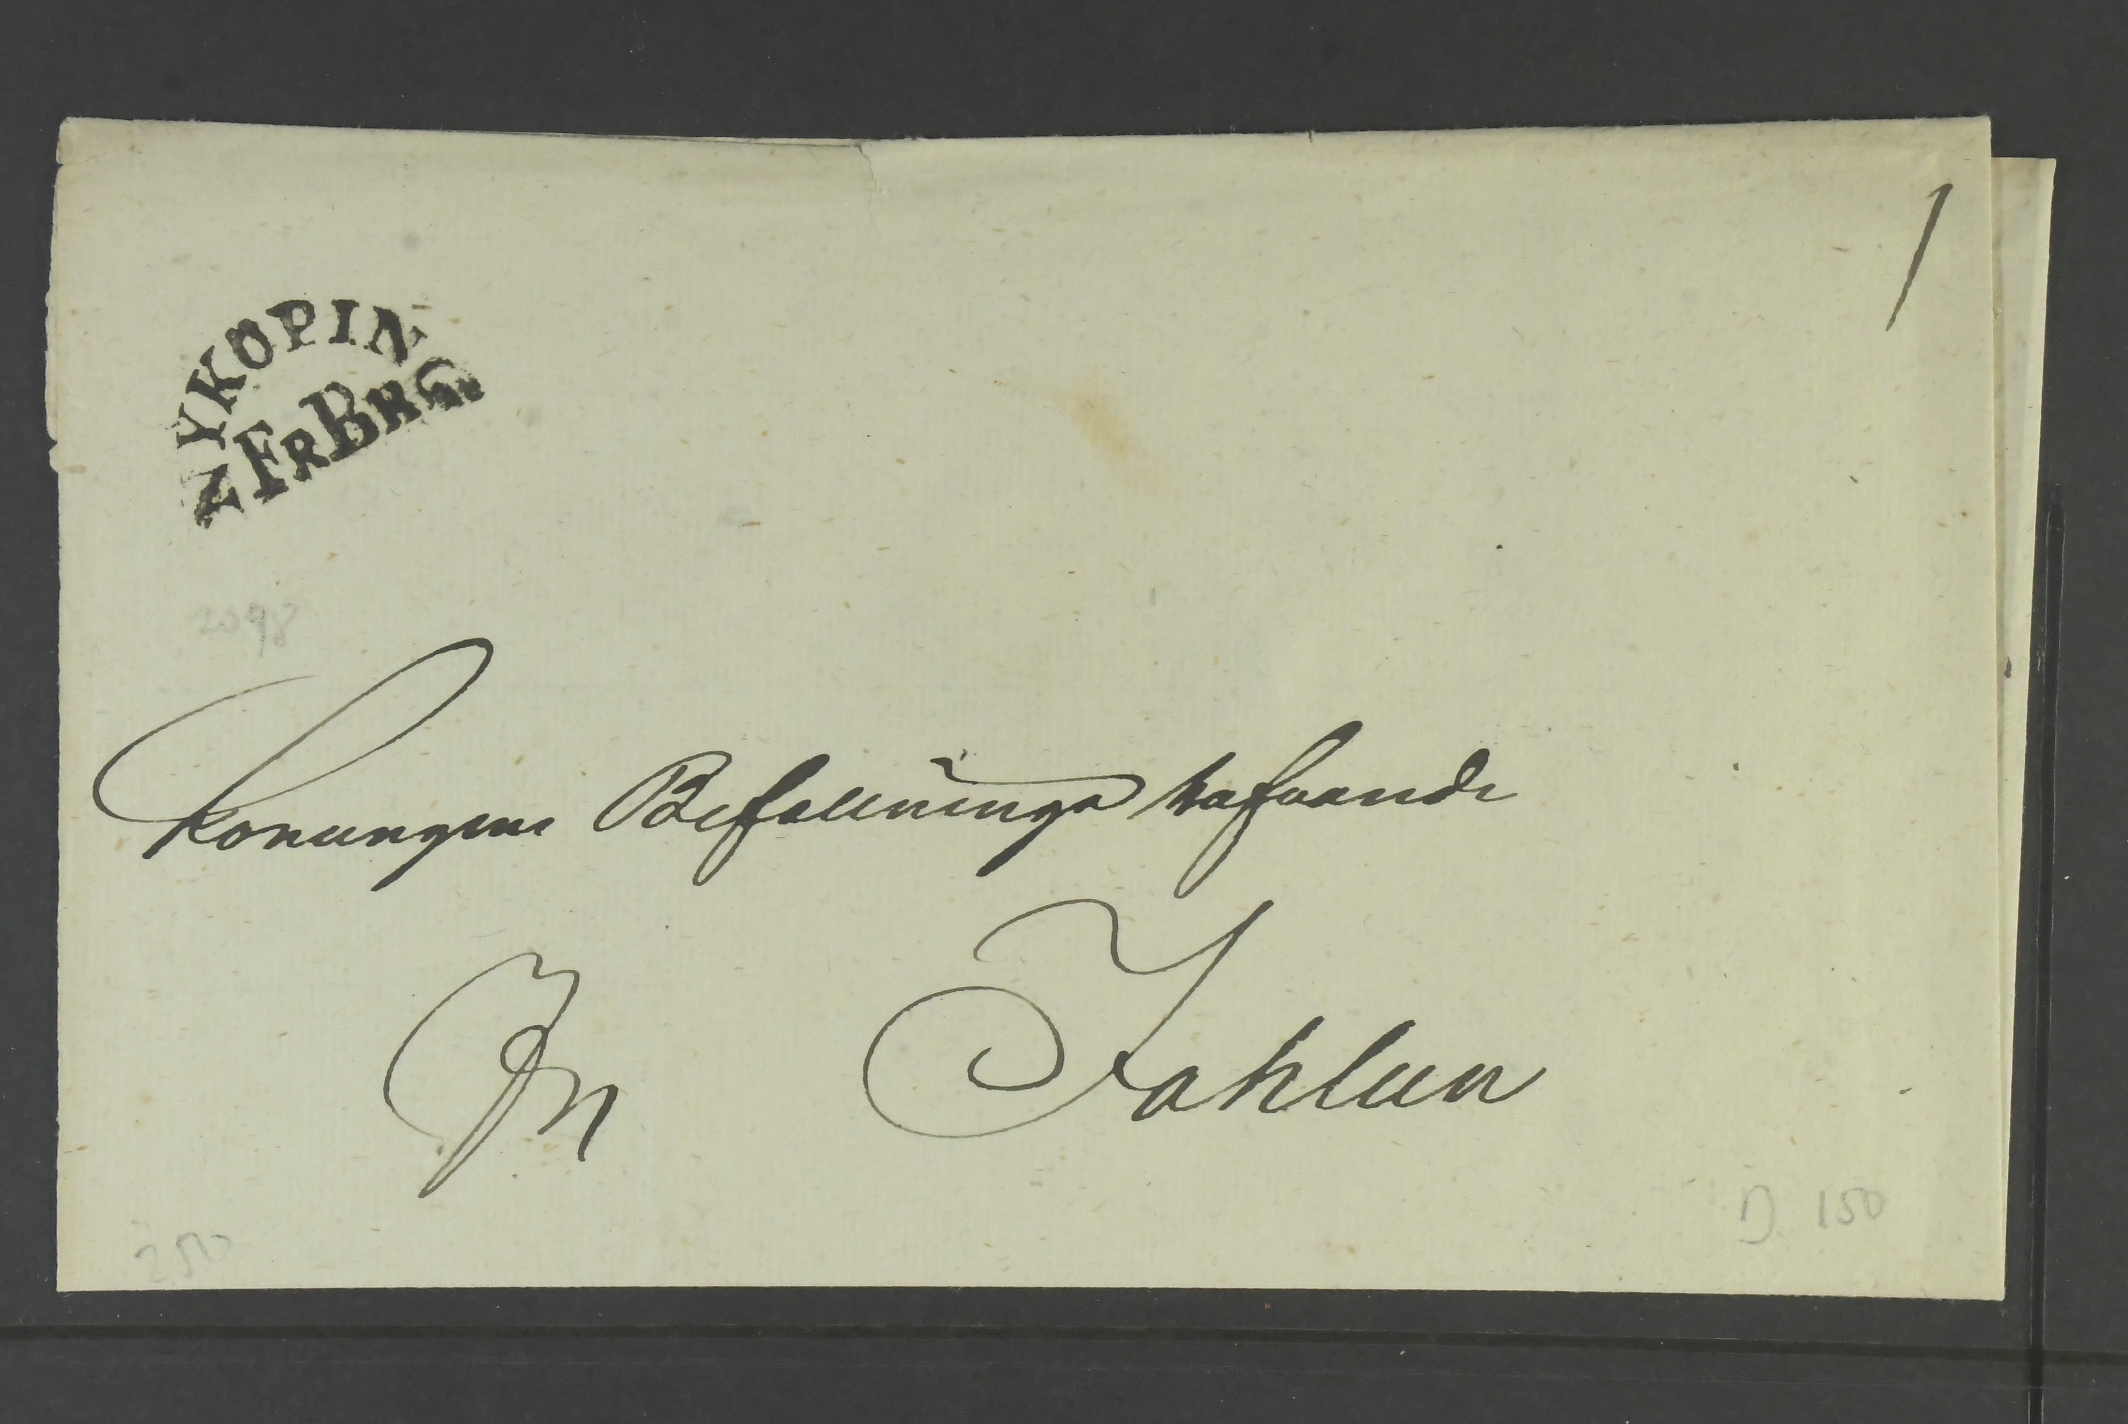 NYKOPING
FRBREF
2098
Konungens Befallnings hafvande
In Fahlun
250
D. 150
1